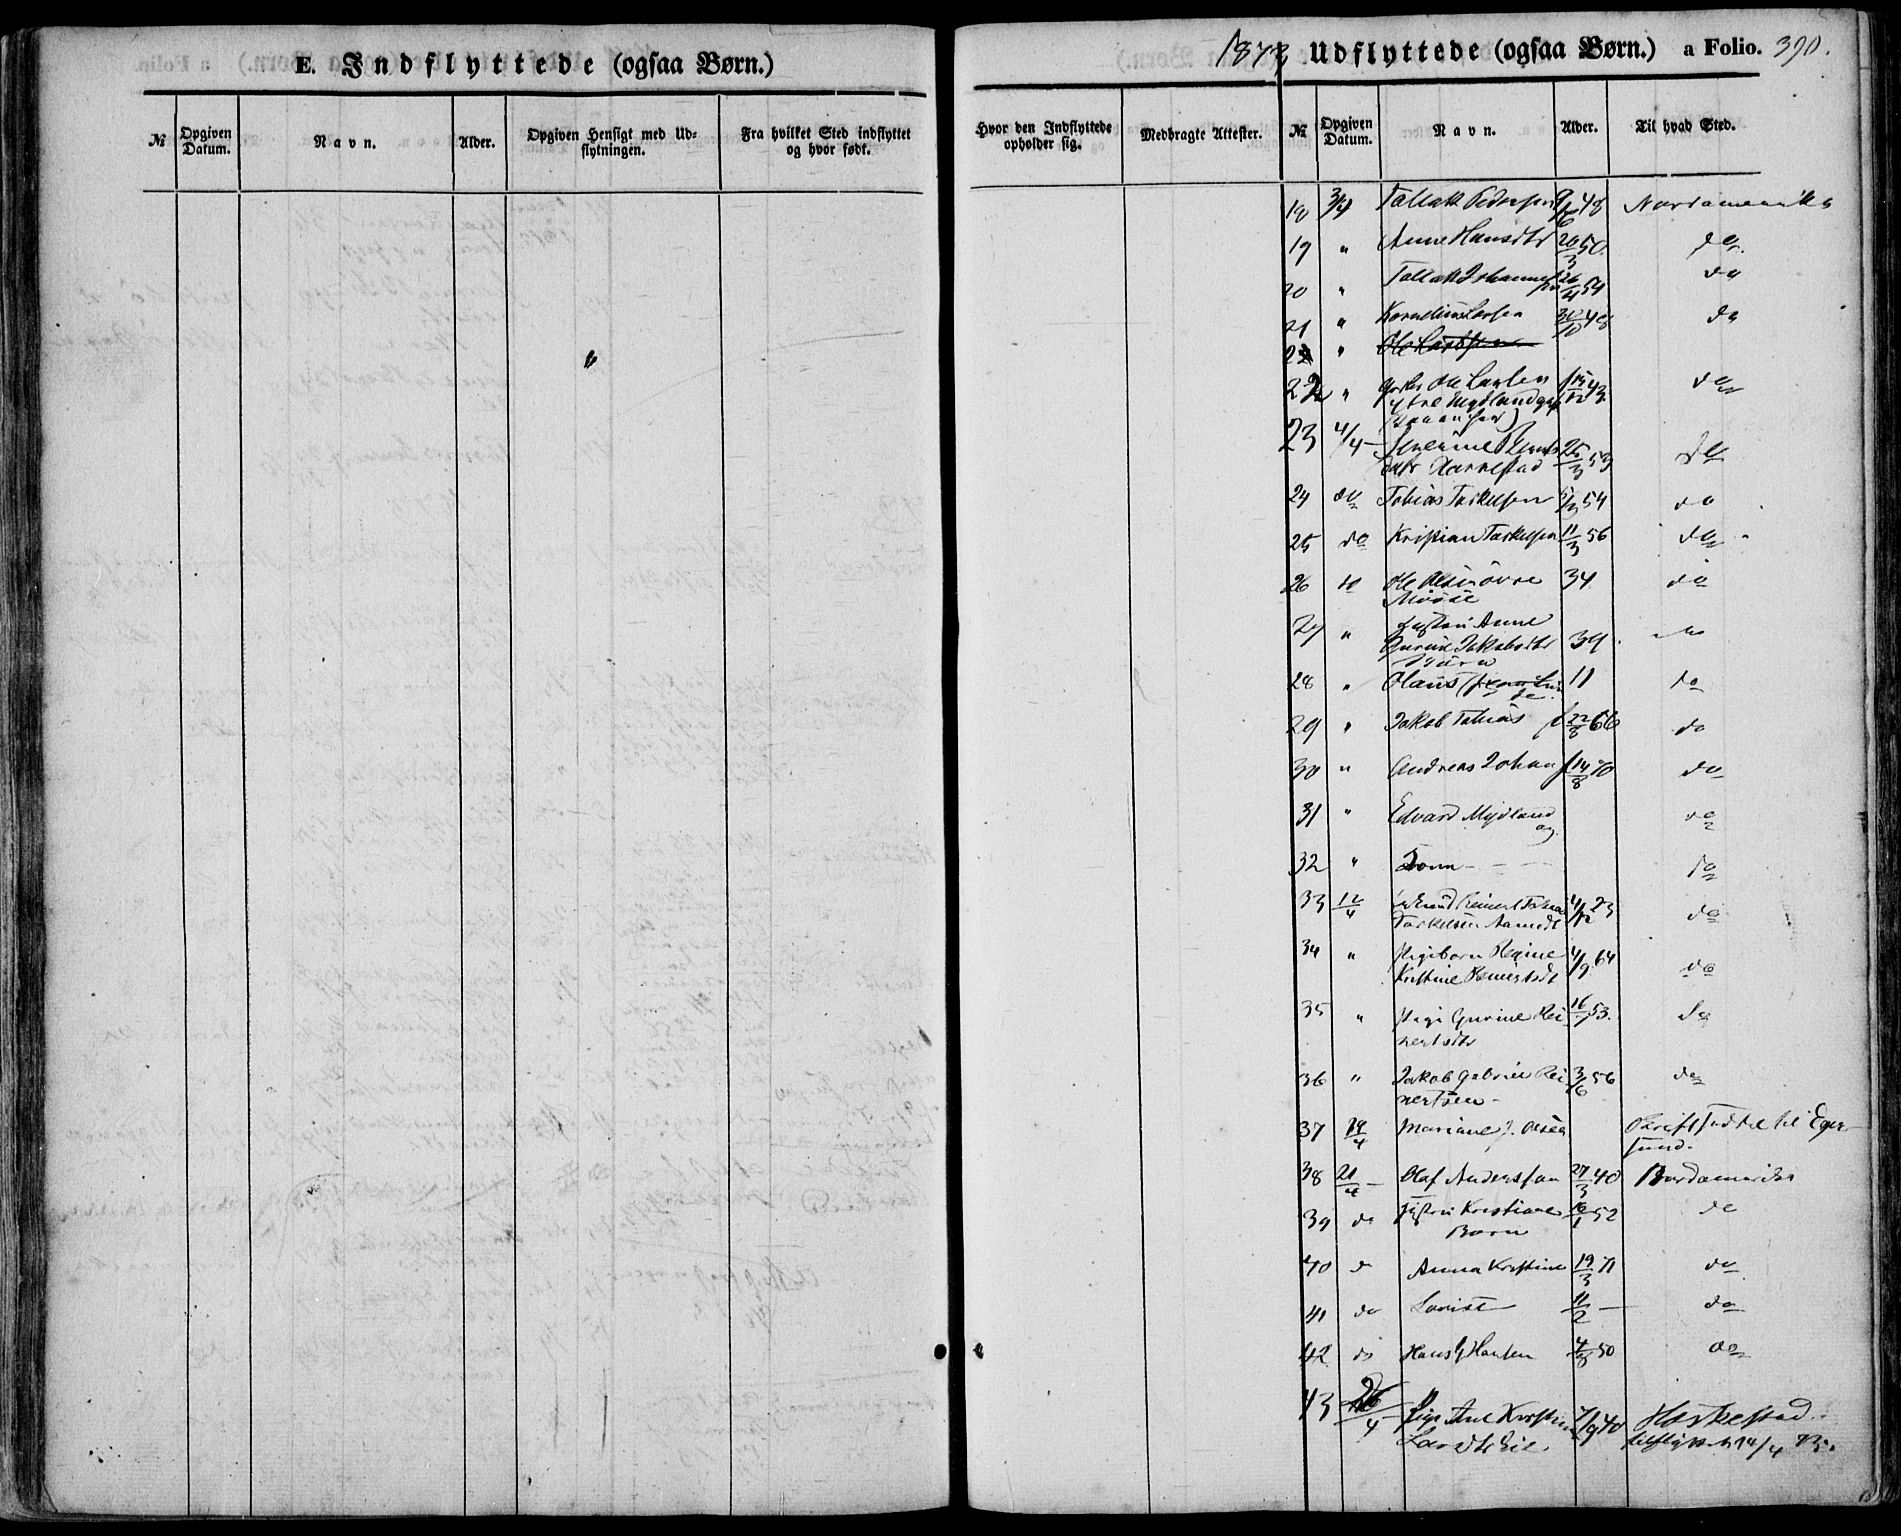 E. Indflyttede (ogsaa Børn.)
№
Opgiven Datum.
Navn.
Alder.
Opgiven Hensigt med Udflytningen.
Fra hvilket Sted indflyttet og hvor født.
1873 Udflyttede (ogsaa Børn.) a Folio. 390.
Hvor den Indflyttede opholder sig.
Medbragte Attester.
№
Opgiven Datum.
Navn.
Alder.
Til hvad Sted.
18 3/4 Tallak Pedersen 9/6 48 Nordamerika
19 " Anne Hansdtr 20/3 50. do
20 " Tallak Johannessen 26/4 54 do
21 " Kornelius Larsen 30/10 48 do
22 " Ole Larsen
22 " Ole Larsen f 15/12 43 do
ytre Mydland
23 4/4 Severine Bernts
datr Harrestad 25/3 53 do
24 do Tobias Torkelsen 5/3 54 do
25 do Kristian Torkelsen 11/3 56 do
26 do Ole Olsen øvre 34 do
27 " Hustru Anne
Gurine Jakobsdtr 34 do
Børn
28 " Olaus 11 do
29 " Jakob Tobias f 22/8 66 do
30 " Andreas Johan f 14/8 70 do
31 " Edvard Mydland do
og
32 " Tom — — — do
33 12/4 Reinert
Torkelsen Aamodt 4/12 23 do
34 " Pigebarn Regine 4/9 64
Kristine Reinertsdt do
35 " Pige Gurine Rei 16/7 53. do
nertsdtr
36 " Jakob Gabriel Rei 3/6 56 do
nertsen
37 19/4 Mariane J. Olsen til Eger-
sund.
38 21/4 — Olaf Andersson 27/3 40 Nordamerika
39 do Hustru Kristiane 16/1 52 do
Børn
40 do Anna Kristine 19/3 71 do
41 do Lovise 11/2 — do
42 do Hans Hansen 4/3 50 do
43 26/4 Pige Ane Kristine 7/9 40 Heskestad.
Larsdtr Eie tilflytt. 14/4 73.